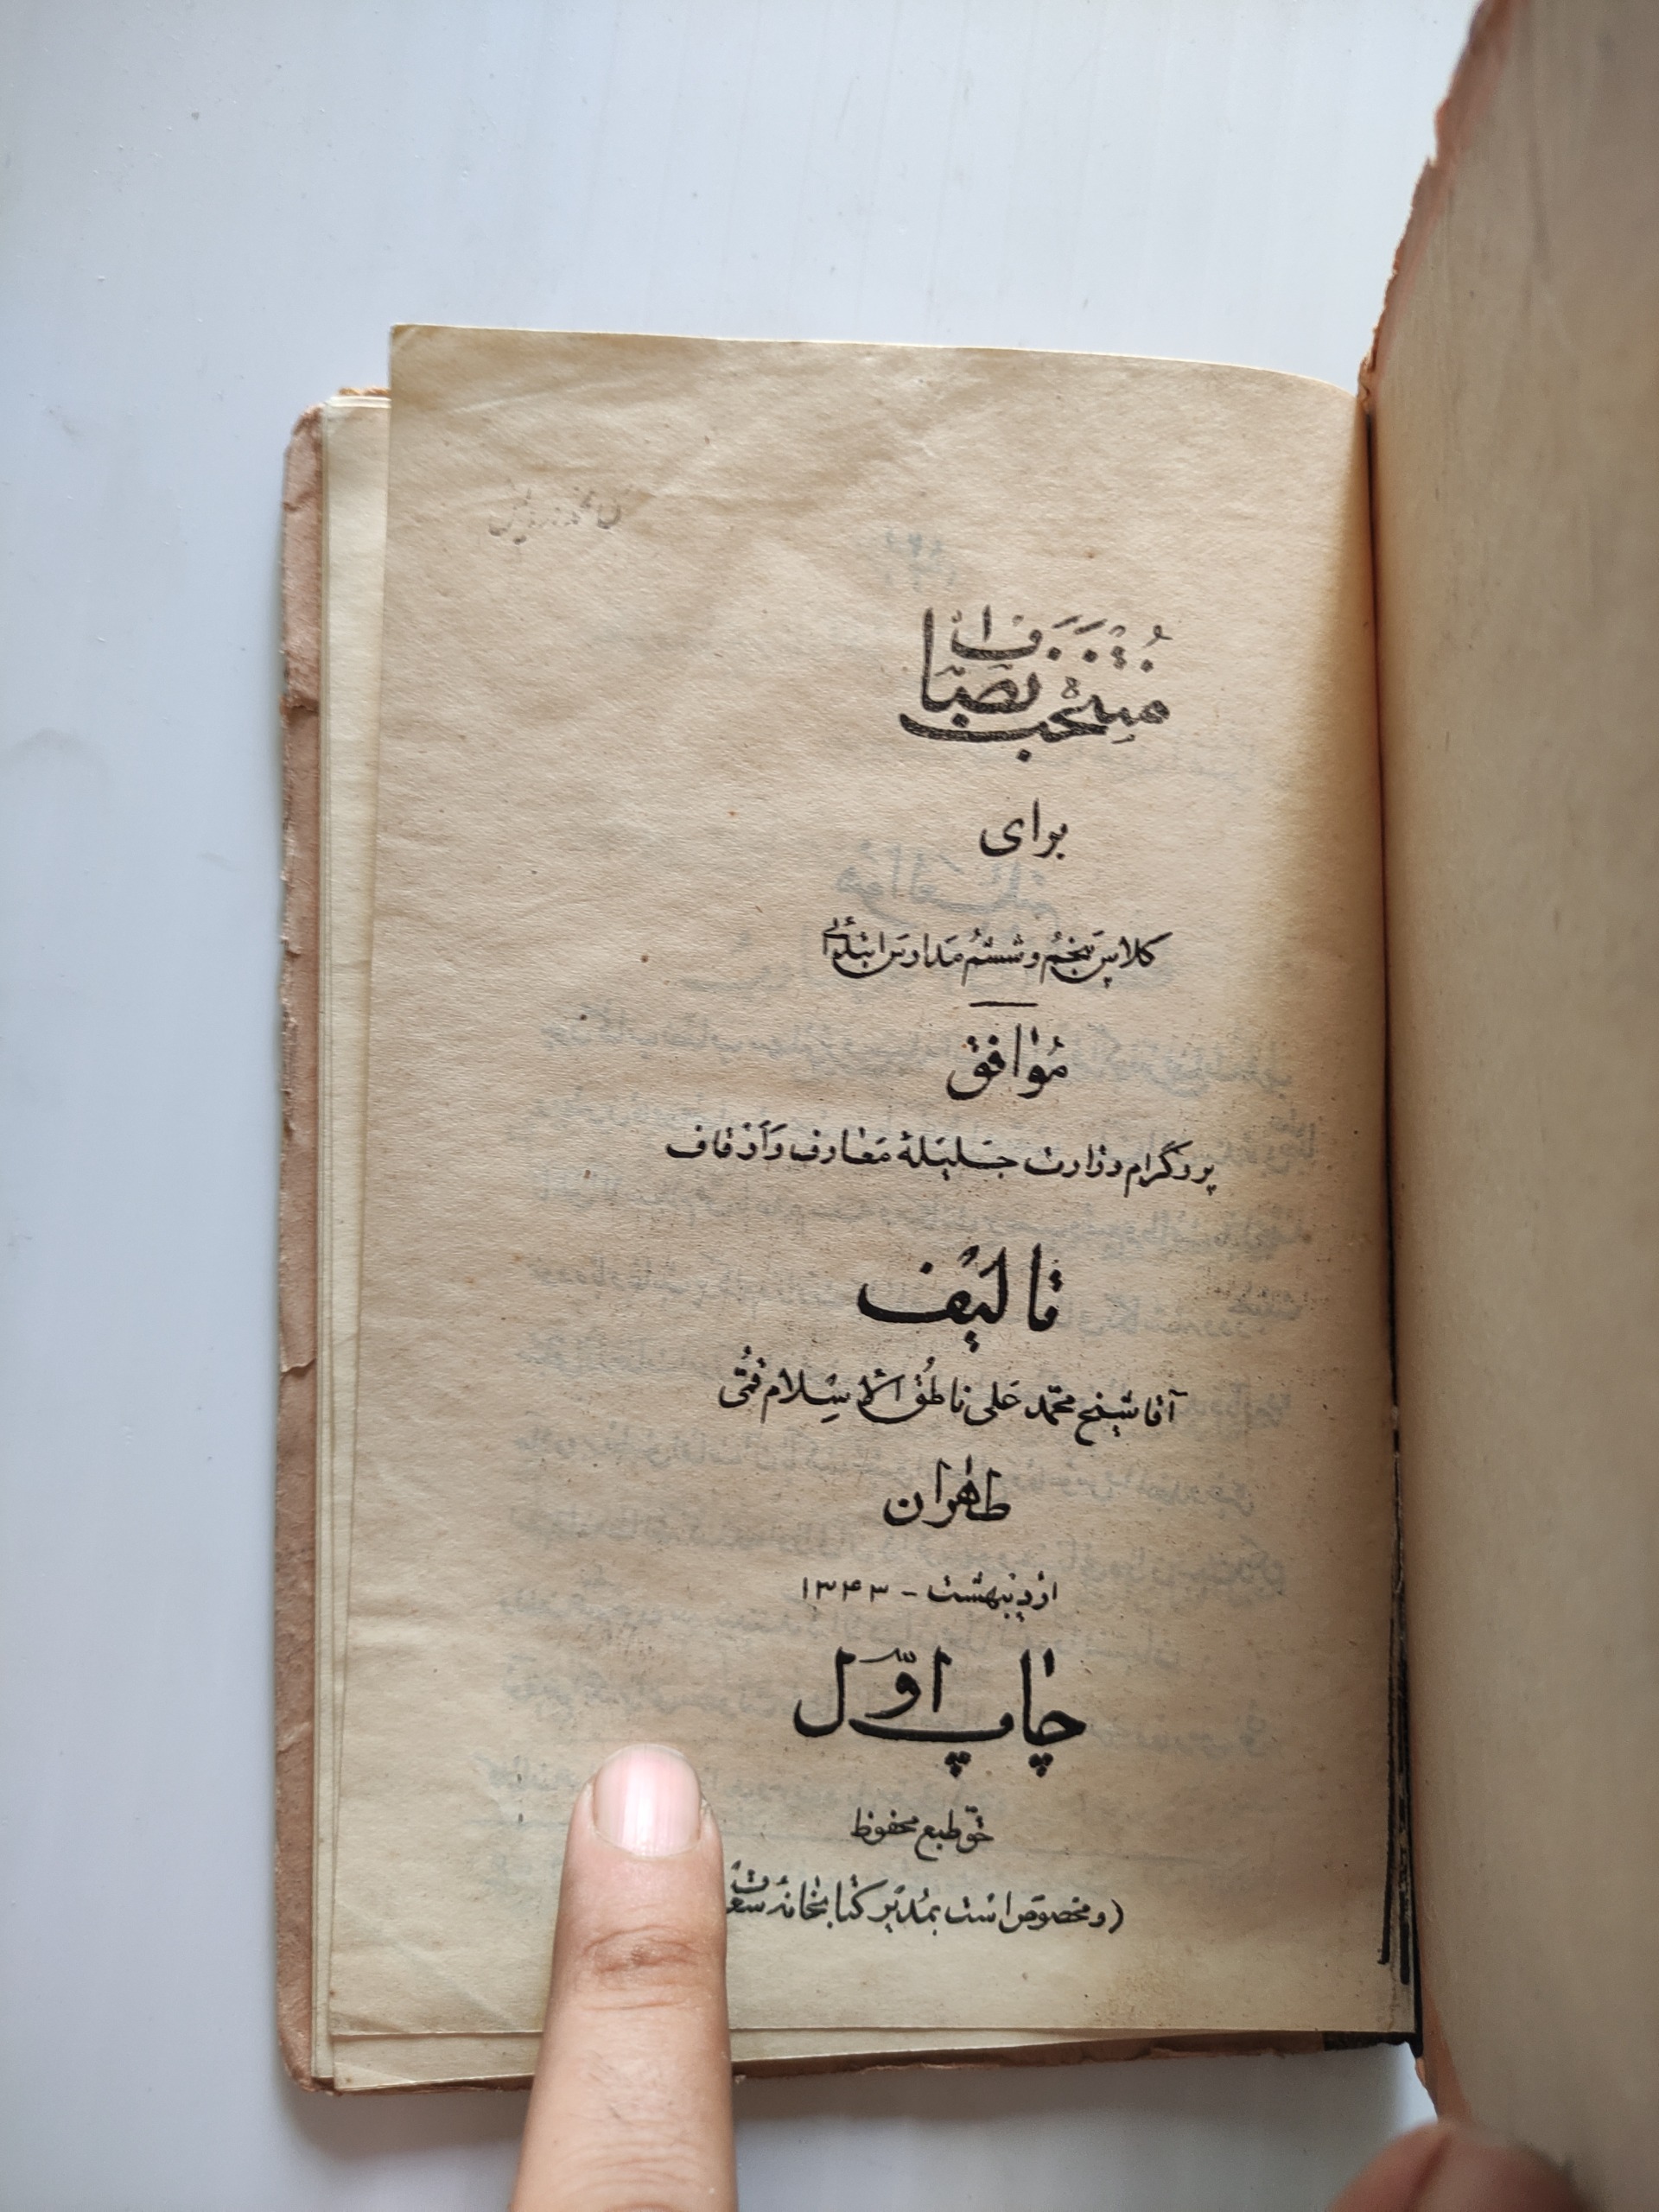 منتخب نصاب
برای
کلاس پنجم و ششم مدارس ابتدائی
موافق
پروگرام وزارت جلیلهٔ معارف و اوقاف
تالیف
آقا شیخ محمد علی ناطق الاسلام قمی
طهران
اردیبهشت - ۱۳۴۳
چاپ اول
حق طبع محفوظ
(و مخصوص است بمدیر کتابخانه